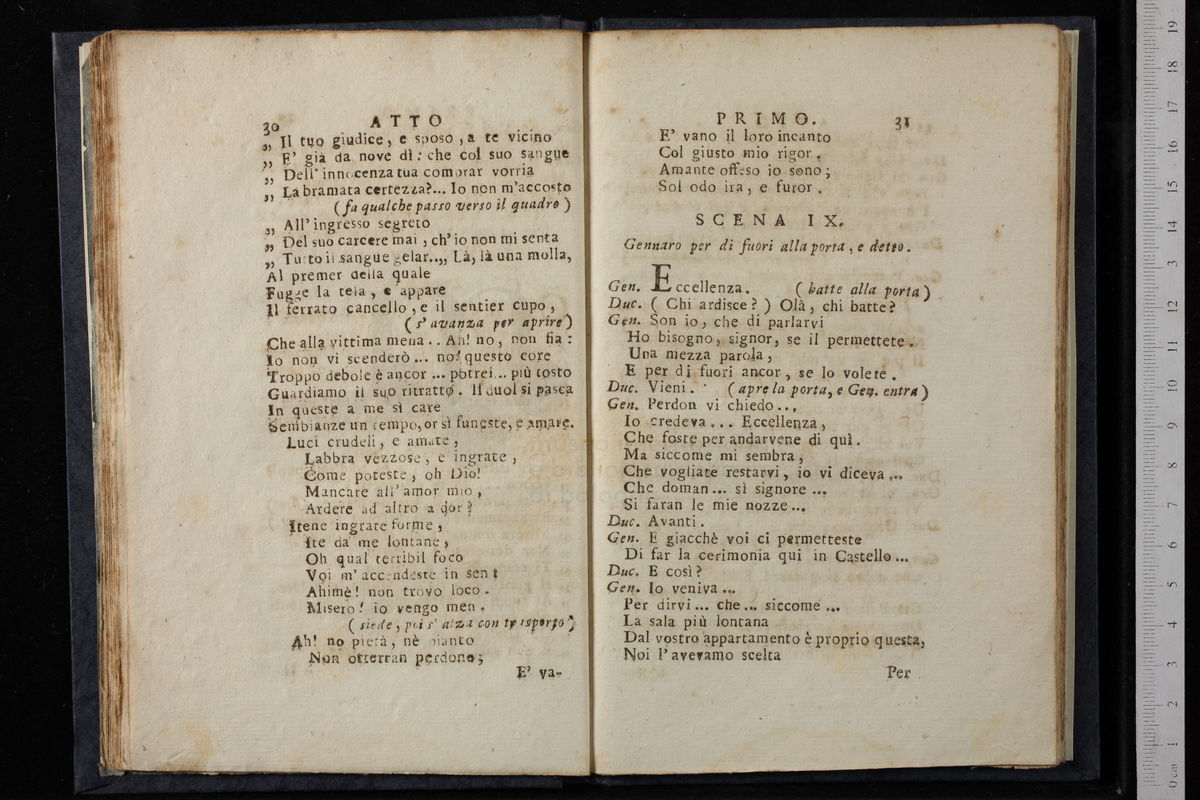 30 ATTO
„ Il tuo giudice, e sposo, a te vicino
„ E' già da nove dì: che col suo sangue
„ Dell'innocenza tua comprar vorria
„ La bramata certezza?... Io non m'accosto
( fa qualche passo verso il quadro )
„ All'ingresso segreto
„ Del suo carcere mai, ch'io non mi senta
„ Tutto il sangue gelar..„ Là, là una molla,
Al premer della quale
Fugge la tela, e appare
Il ferrato cancello, e il sentier cupo,
( s'avanza per aprire )
Che alla vittima mena.. Ah! no, non fia:
Io non vi scenderò... no! questo core
Troppo debole è ancor... potrei... più tosto
Guardiamo il suo ritratto. Il duol si pasca
In queste a me sì care
Sembianze un tempo, or sì funeste, e amare.
Luci crudeli, e amate,
Labbra vezzose, e ingrate,
Come poteste, oh Dio!
Mancare all'amor mio,
Ardere ad altro ardor?
Itene ingrate forme,
Ite da me lontane,
Oh qual terribil foco
Voi m'accendeste in sen!
Ahimè! non trovo loco.
Misero! io vengo men.
( siede, poi s'alza con trasporto )
Ah! no pietà, nè pianto
Non otterran perdono;
E' va-
PRIMO. 31
E' vano il loro incanto
Col giusto mio rigor.
Amante offeso io sono;
Sol odo ira, e furor.
SCENA IX.
Gennaro per di fuori alla porta, e detto.
Gen. Eccellenza. ( batte alla porta )
Duc. ( Chi ardisce? ) Olà, chi batte?
Gen. Son io, che di parlarvi
Ho bisogno, signor, se il permettete.
Una mezza parola,
E per di fuori ancor, se lo volete.
Duc. Vieni. ( apre la porta, e Gen. entra )
Gen. Perdon vi chiedo...
Io credeva... Eccellenza,
Che foste per andarvene di quì.
Ma siccome mi sembra,
Che vogliate restarvi, io vi diceva...
Che doman... sì signore...
Si faran le mie nozze...
Duc. Avanti.
Gen. E giacchè voi ci permetteste
Di far la cerimonia qui in Castello...
Duc. E così?
Gen. Io veniva...
Per dirvi... che... siccome...
La sala più lontana
Dal vostro appartamento è proprio questa,
Noi l'avevamo scelta
Per
0 cm 1 2 3 4 5 6 7 8 9 10 11 12 13 14 15 16 17 18 19